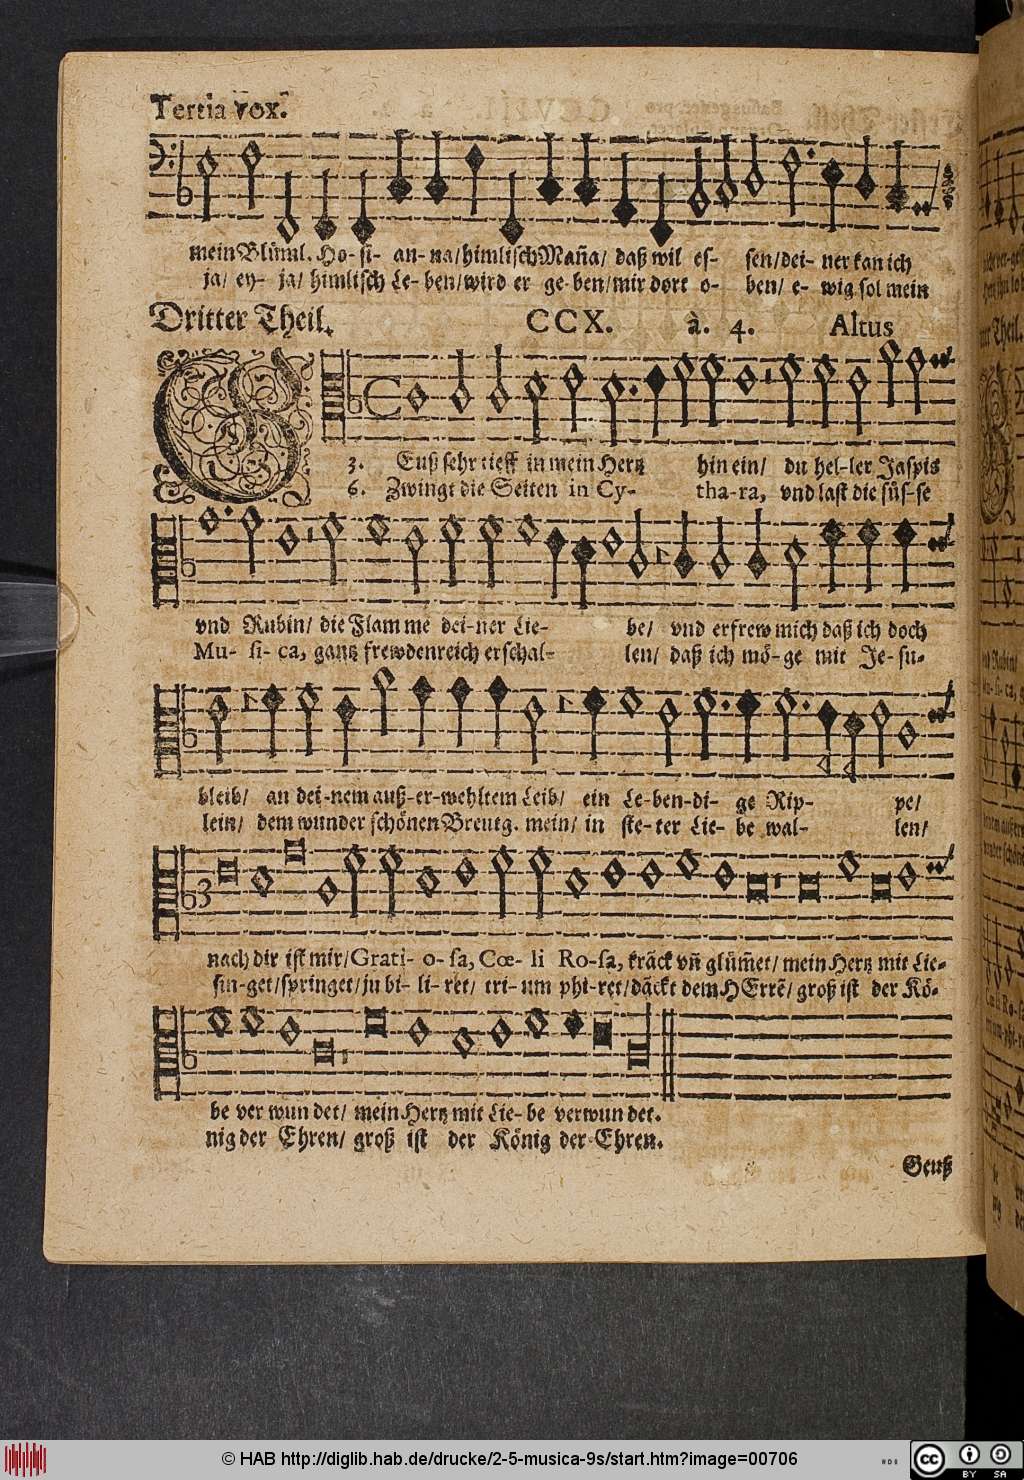 Tertia vox.
mein Blüml. Ho- si- an- na/ himlisch Mañа/ daß wil es- sen/ dei- ner kan ich
ja/ ey- ja/ himlisch Le- ben/ wird er ge- ben/ mir dort o- ben/ e- wig sol mein
Dritter Theil. CCX. à. 4. Altus
G
3. Euß sehr tieff in mein Hertz hin ein/ du hel- ler Jaspis
6. Zwingt die Seiten in Cy- tha- ra, vnd last die süs- se
vnd Rubin/ die Flam me dei- ner Lie- be/ vnd erfrew mich daß ich doch
Mu- si- ca, gantz frewdenreich erschal- len/ daß ich mö- ge mit Je- su-
bleib/ an dei- nem auß- er- wehltem Leib/ ein Le- ben- di- ge Rip- pe/
lein/ dem wunder schönen Breutg. mein/ in ste- ter Lie- be wal- len/
3
nach dir ist mir/ Grati- o- sa, Cœ- li Ro- sa, kräck vñ glüm̃et/ mein Hertz mit Lie-
sin- get/ springet/ ju bi- li- ret/ tri- um phi- ret/ däckt dem HErrẽ/ groß ist der Kö-
be ver wun det/ mein Hertz mit Lie- be verwun det.
nig der Ehren/ groß ist der König der Ehren.
Geuß
© HAB http://diglib.hab.de/drucke/2-5-musica-9s/start.htm?image=00706
cc BY SA